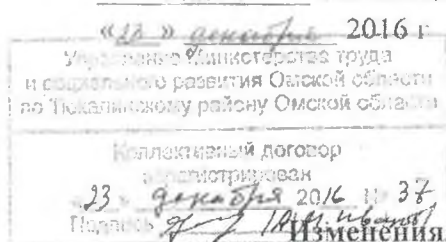 «23» декабря 2016 г
Управление Министерства труда
и социального развития Омской области
по Тюкалинскому району Омской области
Коллективный договор
зарегистрирован
«23» декабря 2016 № 37
Подпись
Изменения